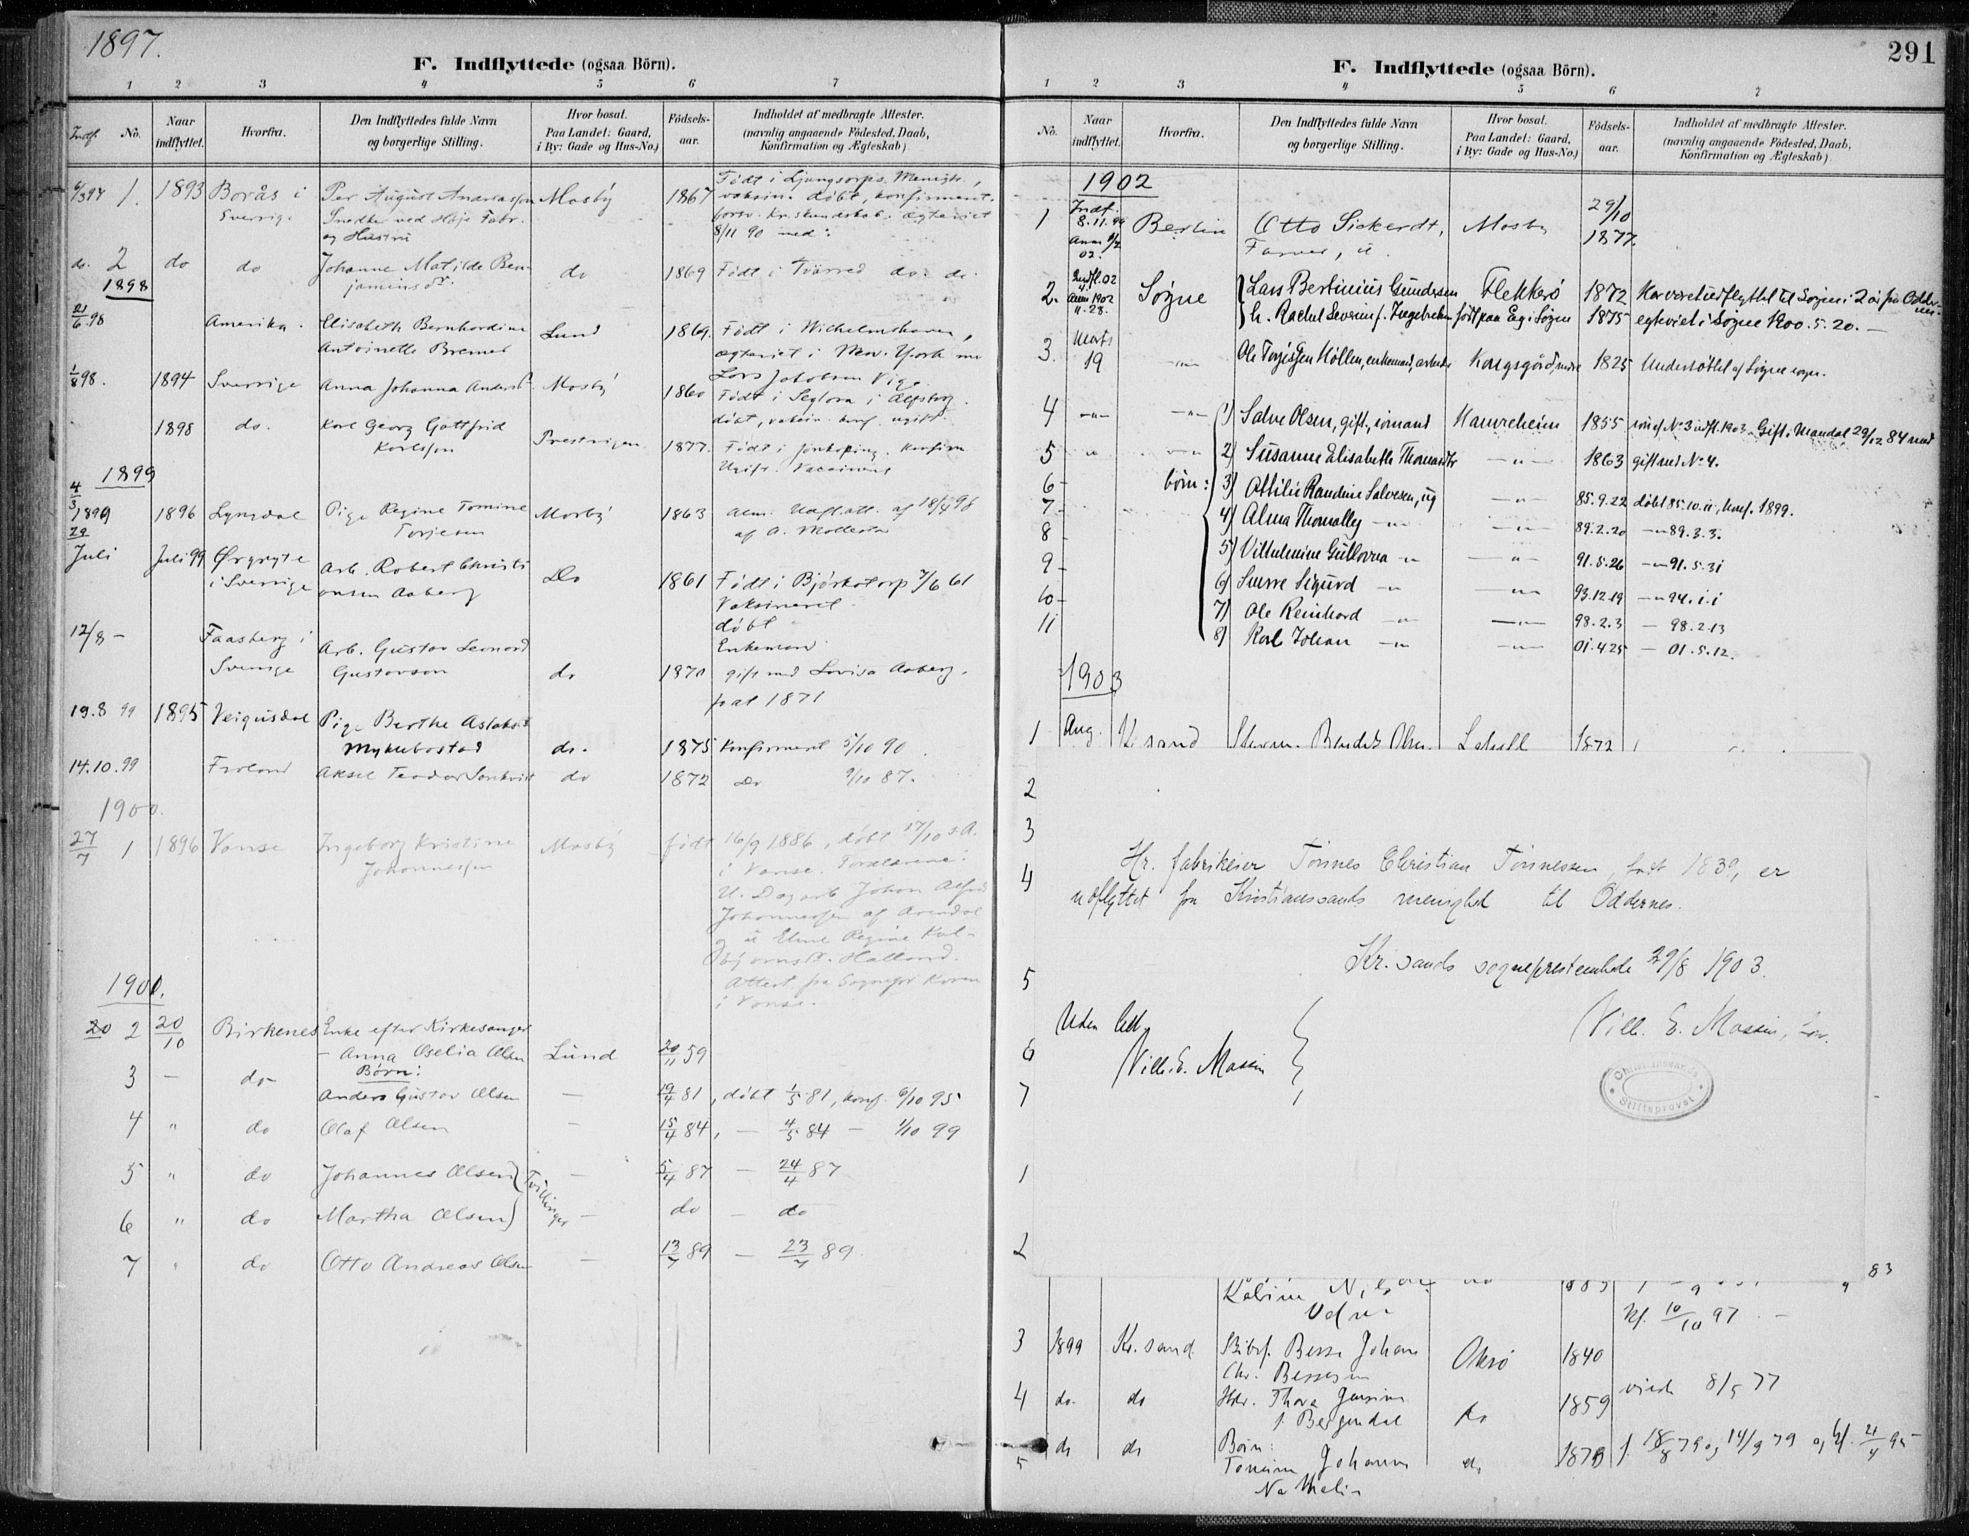 1897.
F. Indflyttede (ogsaa Börn).
1 2 3 4 5 6 7
Indf. No. Naar indflyttet. Hvorfra. Den Indflyttedes fulde Navn og borgerlige Stilling. Hvor bosat. Paa Landet: Gaard, i By: Gade og Hus-No.) Födsels-aar. Indholdet af medbragte Attester. (navnlig angaaende Födested, Daab, Konfirmation og Ægteskab)
1. 1893 Borås i Per August Mosby 1867 Født i Ljungsarps Menigh.,
Sverrige Snedker ved Høie Fabr. vaksin. døbt, konfirmeret.
og Hustru 8/11 90 med:
do. 2 do do Johanne Matilde do 1869 Født i do. do.
1898
21/6 98 Amerika. Elisabeth Bernhardine Lund 1869. Født i Wilhelmshaven,
Antoinette Bremer ægteviet i New York m
Lars Jakobsen Vige.
1/8 98. 1894 Sverrige Anna Johanna Mosby 1860 Født i Seglora i Elfsborg.
døbt, vaksin. konf. ugift.
1898 do. Karl Georg Gottfrid 1877. Født i Jönkøping. Konfirm
Karlsson Ugift. Vaccineret
1899
4/3 1899 1896 Lyngdal Pige Regine Tomine Mosby 1863
Torjesen
29 Juli Juli 99 Ørgryte Arb. Robert Christi Do 1861 Født i Bjørketorp 7/6 61
i Sverrige onsen Aaberg Vaksineret
døbt
Enkemand
12/8 - Faasberg i Arb. Gustav Leonard
Sverige Gustavson do 1870 gift med Lovisa Aaberg.
1871
19.8 99 1895 Veigusdal Pige Berthe Aslaksd
Myklebostad do. 1875 Konfirmeret 5/10 90.
14.10.99 Froland Aksel Teodor do 1872 Do 9/10 87.
1900.
27/7 1 1896 Vanse Ingeborg Kristine Mosby født 16/9 1886, døbt 17/10 s.A.
Johannessen i Vanse. Forældrene:
U. Dagarb. Johan Alfred
Johannessen af Arendal
og Regine Kol-
bjørnsd. Halland.
Attest fra Sognepr Koren
i Vanse.
1900.
20 2 20/10 Birkenes Enke efter Kirkesanger
- Anna Oselia Olsen Lund 20/11 59
Børn:
3 - do - Anders Gustav Olsen - 19/4 81, døbt 1/5 81, konf. 6/10 95
4 " do Olaf Olsen - 15/4 84, - 4/5 84 - 1/10 99
5 " do Johannes Olsen - 5/4 87 - 24/4 87
Tvillinger
6 " do Martha Olsen - do - do
7 " do Otto Andreas Olsen - 13/7 89 - 23/7 89.
291
F. Indflyttede (ogsaa Börn).
1 2 3 4 5 6 7
No. Naar indflyttet. Hvorfra. Den Indflyttedes fulde Navn og borgerlige Stilling. Hvor bosat. Paa Landet: Gaard, i By: Gade og Hus-No.) Födsels-aar. Indholdet af medbragte Attester. (navnlig angaaende Födested, Daab, Konfirmation og Ægteskab)
1902
1 Indf. 8.11.99 Berlin Otto Sickerdt, Mosby 29/10 1877.
Farver, u.
2. Indfl. 02 Søgne Lars Bertinius Gundersen Flekkerø 1872 Har været udflyttet til Søgne i 2 år fra Odder-nes.
Anm 1902 11-28. h. Rachel Severine f. Ingebretsen født paa Eg i Søgne 1875 egteviet i Søgne 1900.5.20. -
3. Marts 19 -"- Ole Torjussen Møllen, enkemand, arbeider Kongsgård, nedre 1825 Understøttet af Søgne sogn.
4 -"- -"- 1) Salve Olsen, gift, sømand Hamreheien 1855 søn af No 3 indfl. 1903. Gift i Mandal 29/12 84 med
5 " -"- 2) Susanne Elisabeth Thomasdtr -"- 1863 gift med No 4.
6 - børn: 3) Ottilie Randine Salvesen, ug -"- 85.9.22 døbt 85.10.11, konf. 1899.
7 - 4) Alma Thomalley -"- -"- 89.2.20 -"- 89.3.3.
8 5) Vilhelmine Gullovea -"- -"- 91.5.26 -"- 91.5.31
9 - 6) Sverre Sigurd -"- -"- 93.12.19 -"- 94.1.1
10 - 7) Ole Reinhard -"- -"- 98.2.3 - 98.2.13
11 8) Karl Johan -"- -"- 01.4.25 - 01.5.12.
1903
1 Aug. Kr.sand Olsen 1872
2
3
4
Hr. fabrikeier Tønnes Christian Tønnessen, født 1839, er
udflyttet fra Kristianssands menighed til Oddernes.
Kr.sands sogneprestembede 29/8 1903.
Vilh. E. Massin,
5
Uden
6 Vilh. E. Massin
7
Christianssands Stiftsprovst
1
2
83
Katrine
kf. 10/10 97 -
3 1899 Kr.sand Johan Oksø 1840
Chr. Bessesen
4 do. do Hstr. Thora Jensine do 1859 viede 8/5 77
f. Bergendal
5 do do Børn:
Johanne do 1879 f. 18/8 79 og 14/9 79 og kf. 21/4 95
Nathalie